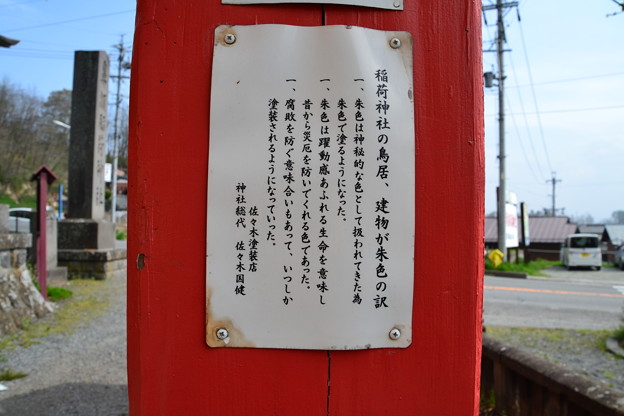 稲荷神社の鳥居、建物が朱色の訳
一、朱色は神秘的な色として扱われてきた為
朱色で塗るようになった。
一、朱色は躍動感あふれる生命を意味し
昔から災厄を防いでくれる色であった。
一、腐敗を防ぐ意味合いもあって、いつしか
塗装されるようになっていった。
佐々木塗装店
神社総代 佐々木国健